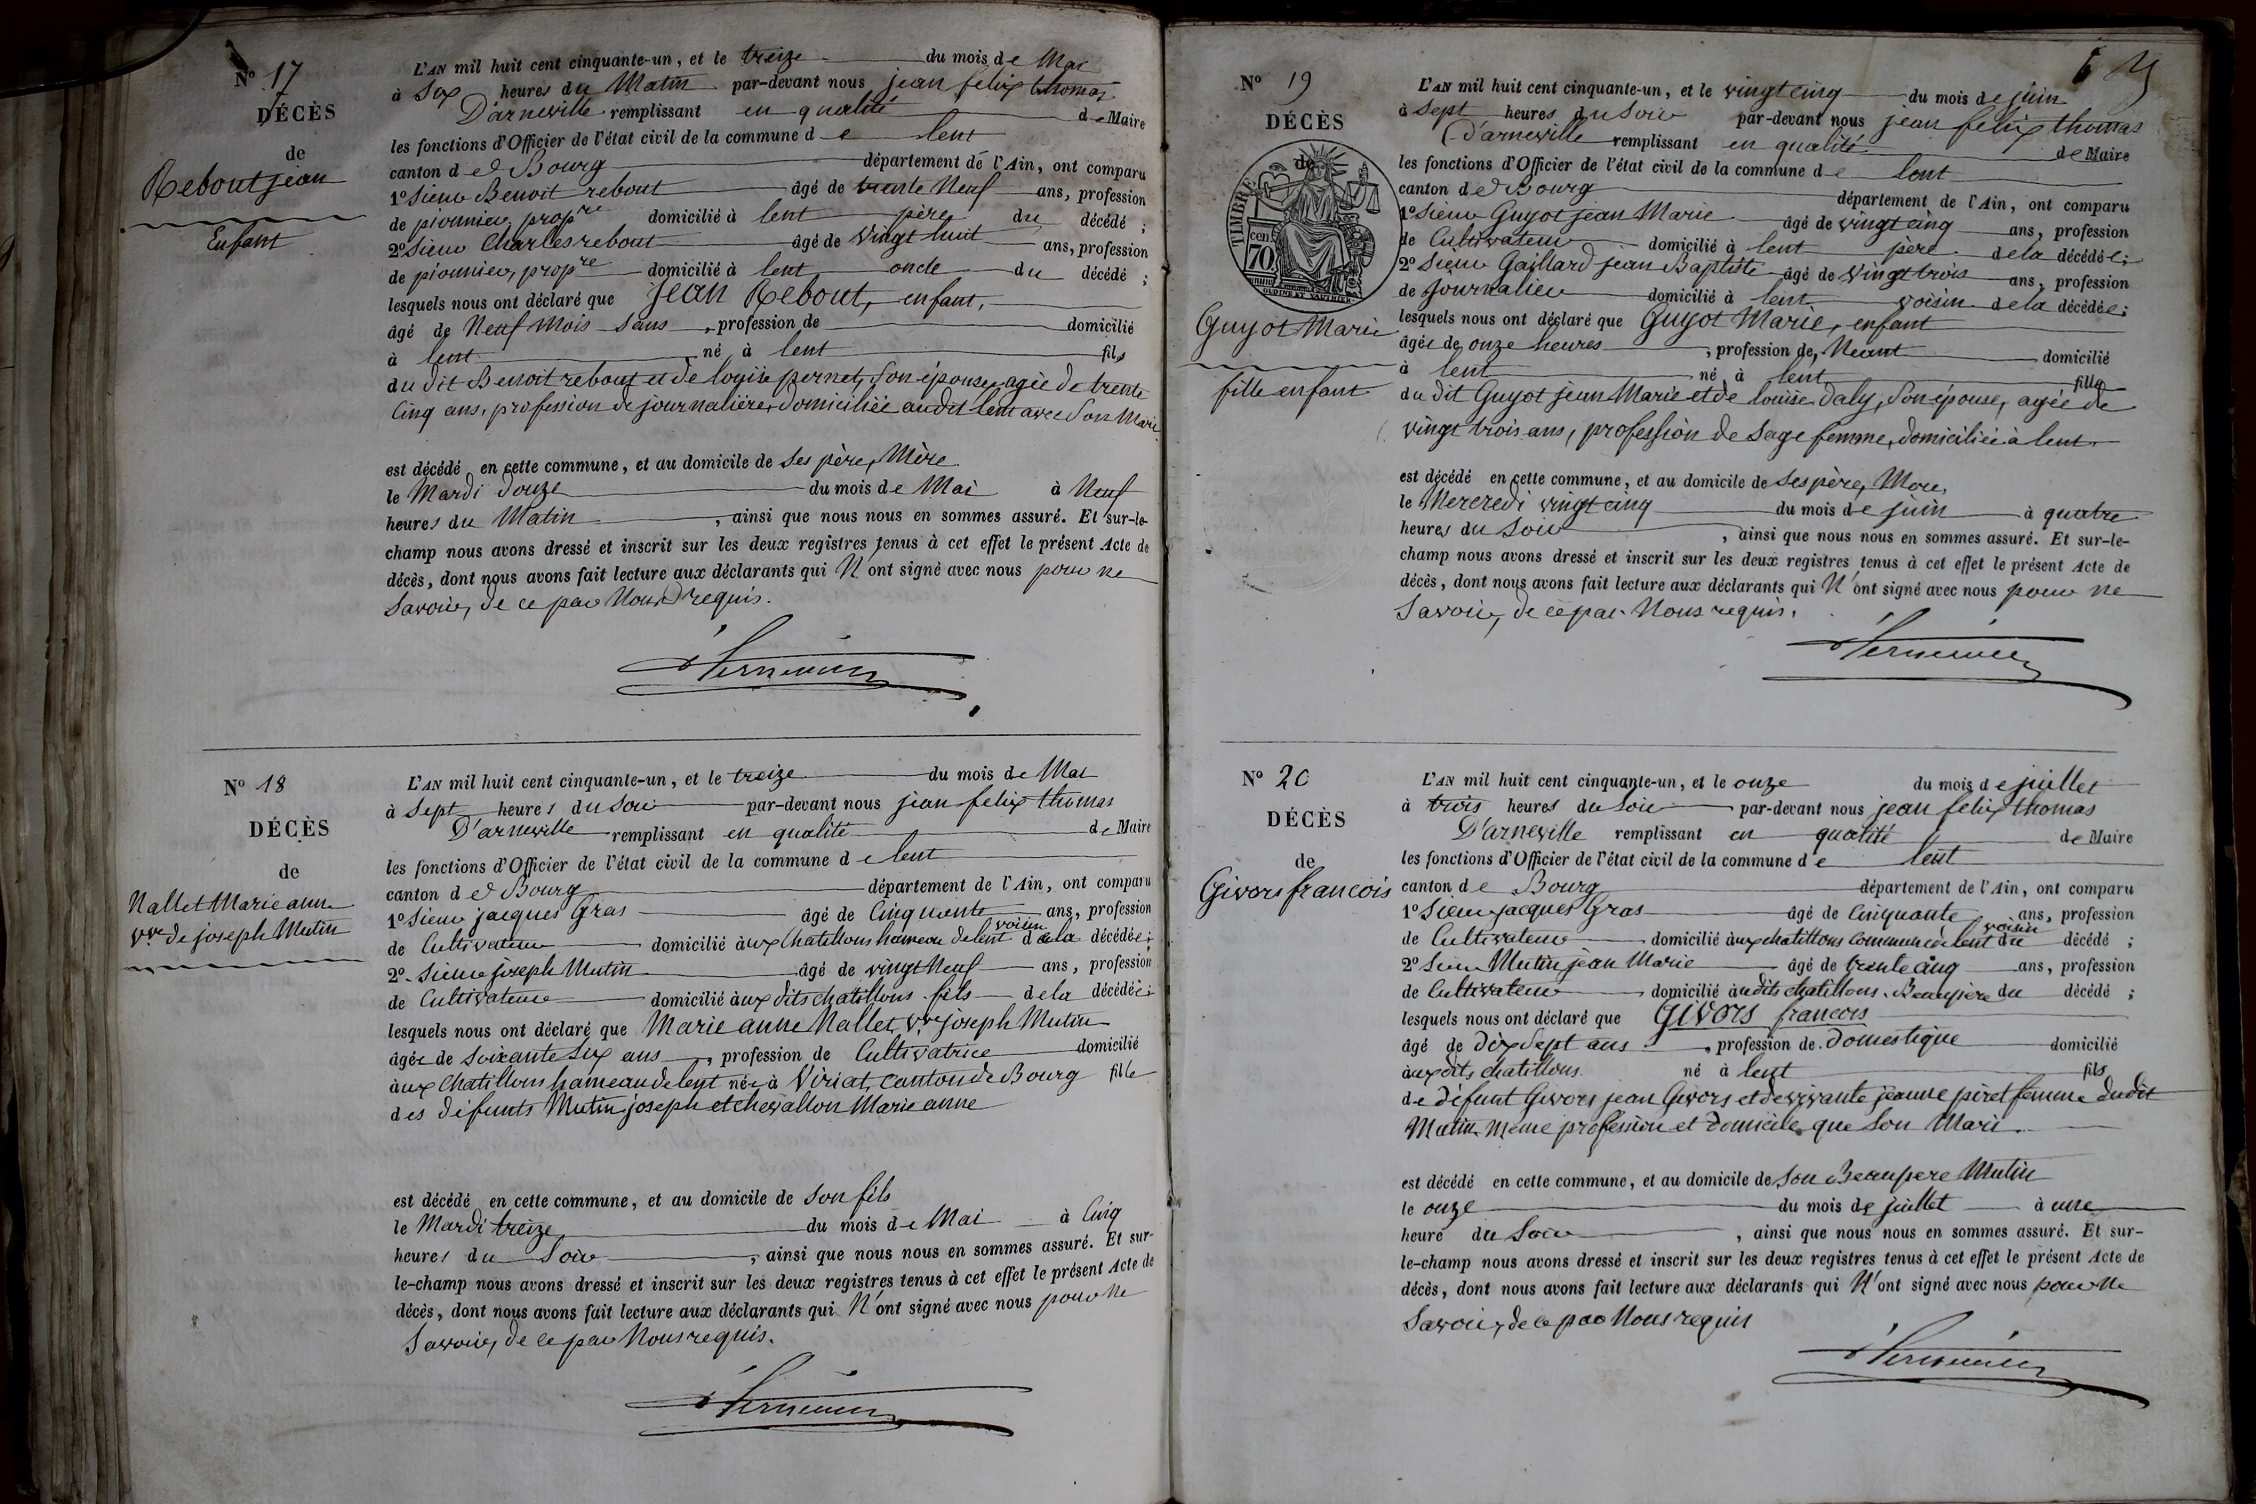 N° 17
DÉCÈS
de
Rebout jean
Enfant
L'AN mil huit cent cinquante-un, et le treize du mois de Mai
à Six heures du Matin par-devant nous jean felix thomas
D'arneville remplissant en qualité de Maire
les fonctions d'Officier de l'état civil de la commune de lent
canton de Bourg département de l'Ain, ont comparu
1° Sieur Benoit rebout âgé de trente Neuf ans, profession
de pionnier, propre domicilié à lent père du décédé ;
2° Sieur Charles rebout âgé de Vingt huit ans, profession
de pionnier, propre domicilié à lent oncle du décédé ;
lesquels nous ont déclaré que Jean Rebout, enfant,
âgé de Neuf Mois Sans , profession de domicilié
à lent né à lent fils
du dit Benoit rebout et de louise pernet, Son épouse, agée de trente
Cinq ans, profession de journalière, domiciliée audit lent avec Son Mari
est décédé en cette commune, et au domicile de Ses père, Mère
le Mardi douze du mois de Mai à Neuf
heures du Matin , ainsi que nous nous en sommes assuré. Et sur-le-
champ nous avons dressé et inscrit sur les deux registres tenus à cet effet le présent Acte de
décès, dont nous avons fait lecture aux déclarants qui N'ont signé avec nous pour ne
Savoir, de ce par Nous requis.
N° 18
DÉCÈS
de
Nallet Marie anne
Vve de joseph Mutin
L'AN mil huit cent cinquante-un, et le treize du mois de Mai
à Sept heures du Soir par-devant nous jean felix thomas
D'arneville remplissant en qualité de Maire
les fonctions d'Officier de l'état civil de la commune de lent
canton de Bourg département de l'Ain, ont comparu
1° Sieur jacques Gras âgé de Cinquante ans, profession
voisin
de Cultivateur domicilié aux Chatillons hameau de lent de la décédée ;
2° Sieur joseph Mutin âgé de vingt Neuf ans, profession
de Cultivateur domicilié aux dits chatillons fils de la décédée ;
lesquels nous ont déclaré que Marie anne Nallet, Vve joseph Mutin
âgée de Soixante Six ans , profession de Cultivatrice domicilié
aux Chatillons hameau de lent née à Viriat, canton de Bourg fille
des défunts Mutin joseph et chevallon Marie anne
est décédé en cette commune, et au domicile de Son fils
le Mardi treize du mois de Mai à Cinq
heures du Soir , ainsi que nous nous en sommes assuré. Et sur-
le-champ nous avons dressé et inscrit sur les deux registres tenus à cet effet le présent Acte de
décès, dont nous avons fait lecture aux déclarants qui N'ont signé avec nous pour Ne
Savoir, de ce par Nous requis.
N° 19
DÉCÈS
de
TIMBRE
cen
70
Guyot Marie
fille enfant
L'AN mil huit cent cinquante-un, et le vingt cinq du mois de juin
à Sept heures du Soir par-devant nous jean felix thomas
D'arneville remplissant en qualité de Maire
les fonctions d'Officier de l'état civil de la commune de lent
canton de Bourg département de l'Ain, ont comparu
1° Sieur Guyot jean Marie âgé de vingt cinq ans, profession
de Cultivateur domicilié à lent père de la décédée ;
2° Sieur Gaillard jean Baptiste âgé de vingt trois ans, profession
de Journalier domicilié à lent voisin de la décédée ;
lesquels nous ont déclaré que Guyot Marie, enfant
âgée de onze heures , profession de Neant domicilié
à lent né à lent fille
du dit Guyot jean Marie et de louise Daly, Son épouse, agée de
vingt trois ans, profession de Sage femme, domiciliée à lent
est décédé en cette commune, et au domicile de Ses père, Mère
le Mercredi vingt cinq du mois de juin à quatre
heures du Soir , ainsi que nous nous en sommes assuré. Et sur-le-
champ nous avons dressé et inscrit sur les deux registres tenus à cet effet le présent Acte de
décès, dont nous avons fait lecture aux déclarants qui N'ont signé avec nous pour ne
Savoir, de ce par Nous requis.
N° 20
DÉCÈS
de
Givors francois
L'AN mil huit cent cinquante-un, et le onze du mois de juillet
à trois heures du Soir par-devant nous jean felix thomas
D'arneville remplissant en qualité de Maire
les fonctions d'Officier de l'état civil de la commune de lent
canton de Bourg département de l'Ain, ont comparu
1° Sieur jacques Gras âgé de Cinquante ans, profession
voisin
de Cultivateur domicilié aux chatillons commune de lent du décédé ;
2° Sieur Mutin jean Marie âgé de trente cinq ans, profession
de Cultivateur domicilié audits chatillons. Beaupère du décédé ;
lesquels nous ont déclaré que Givors francois
âgé de dix Sept ans , profession de Domestique domicilié
aux dits chatillons né à lent fils
de défunt Givors jean Givors et de vivante jeanne piret femme dudit
Mutin Même profession et domicile que Son Mari.
est décédé en cette commune, et au domicile de Son Beaupere Mutin
le onze du mois de juillet à une
heure du Soir , ainsi que nous nous en sommes assuré. Et sur-
le-champ nous avons dressé et inscrit sur les deux registres tenus à cet effet le présent Acte de
décès, dont nous avons fait lecture aux déclarants qui N'ont signé avec nous pour Ne
Savoir, de ce par Nous requis